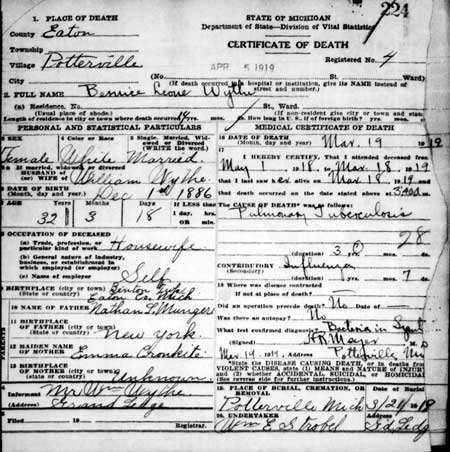 224
1. PLACE OF DEATH
County Eaton
Township
Village Potterville
City
STATE OF MICHIGAN
Department of State—Division of Vital Statistics
CERTIFICATE OF DEATH
APR 5 1919
Registered No. 4
(No. St., Ward)
(If death occurred in a hospital or institution, give its NAME instead of street and number.)
2. FULL NAME Bernice Leone Wythe
(a) Residence. No. St., Ward.
(Usual place of abode)
(If non-resident give city or town and state)
Length of residence in city or town where death occurred yrs. mos. ds. How long in U. S., if of foreign birth? yrs. mos. ds.
PERSONAL AND STATISTICAL PARTICULARS
3 SEX
Female
4 Color or Race
White
5 Single, Married, Widowed or Divorced (WRITE the word)
Married
5a If married, widowed or divorced
HUSBAND of
(or) WIFE of William Wythe
6 DATE OF BIRTH
(Month, day and year) Dec 1 1886
7 AGE Years Months Days If LESS than 1 day, hrs. OR min.
32 3 18
8 OCCUPATION OF DECEASED
(a) Trade, profession, or particular kind of work Housewife
(b) General nature of industry, business, or establishment in which employed (or employer)
(c) Name of employer Self
9 BIRTHPLACE (city or town)
(State or country) Eaton Co. Mich
10 NAME OF FATHER Nathan L. Munger
11 BIRTHPLACE OF FATHER (city or town)
(State or country) New York
12 MAIDEN NAME OF MOTHER Emma Cronkite
13 BIRTHPLACE OF MOTHER (city or town)
(State or country) Unknown
14 Informant Mr Wm Wythe
(Address) Grand Ledge
15 Filed 19
Registrar.
MEDICAL CERTIFICATE OF DEATH
16 DATE OF DEATH
(Month, day and year) Mar. 19 1919
17
I HEREBY CERTIFY, That I attended deceased from
May 1 1918, to Mar 18, 1919
that I last saw her alive on Mar 18, 1919
and that death occurred on the date stated above at m.
The CAUSE OF DEATH* was as follows:
Pulmonary Tuberculosis
28
(duration) 3 yrs. mos. ds.
CONTRIBUTORY Influenza
(Secondary)
(duration) yrs. mos. 7 ds.
18 Where was disease contracted
If not at place of death?
Did an operation precede death? No Date of
Was there an autopsy? No
What test confirmed diagnosis? Bacteria in
(Signed) M. D.
Mar. 19, 1919, (Address) Potterville Mi
*State the DISEASE CAUSING DEATH, or in deaths from VIOLENT CAUSES, state (1) MEANS and NATURE OF INJURY, and (2) whether ACCIDENTAL, SUICIDAL, or HOMICIDAL. (See reverse side for further instructions.)
19. PLACE OF BURIAL, CREMATION, OR REMOVAL
Potterville Mich
Date of Burial
3/21/1919
20. UNDERTAKER
Wm E. Strobel
Address